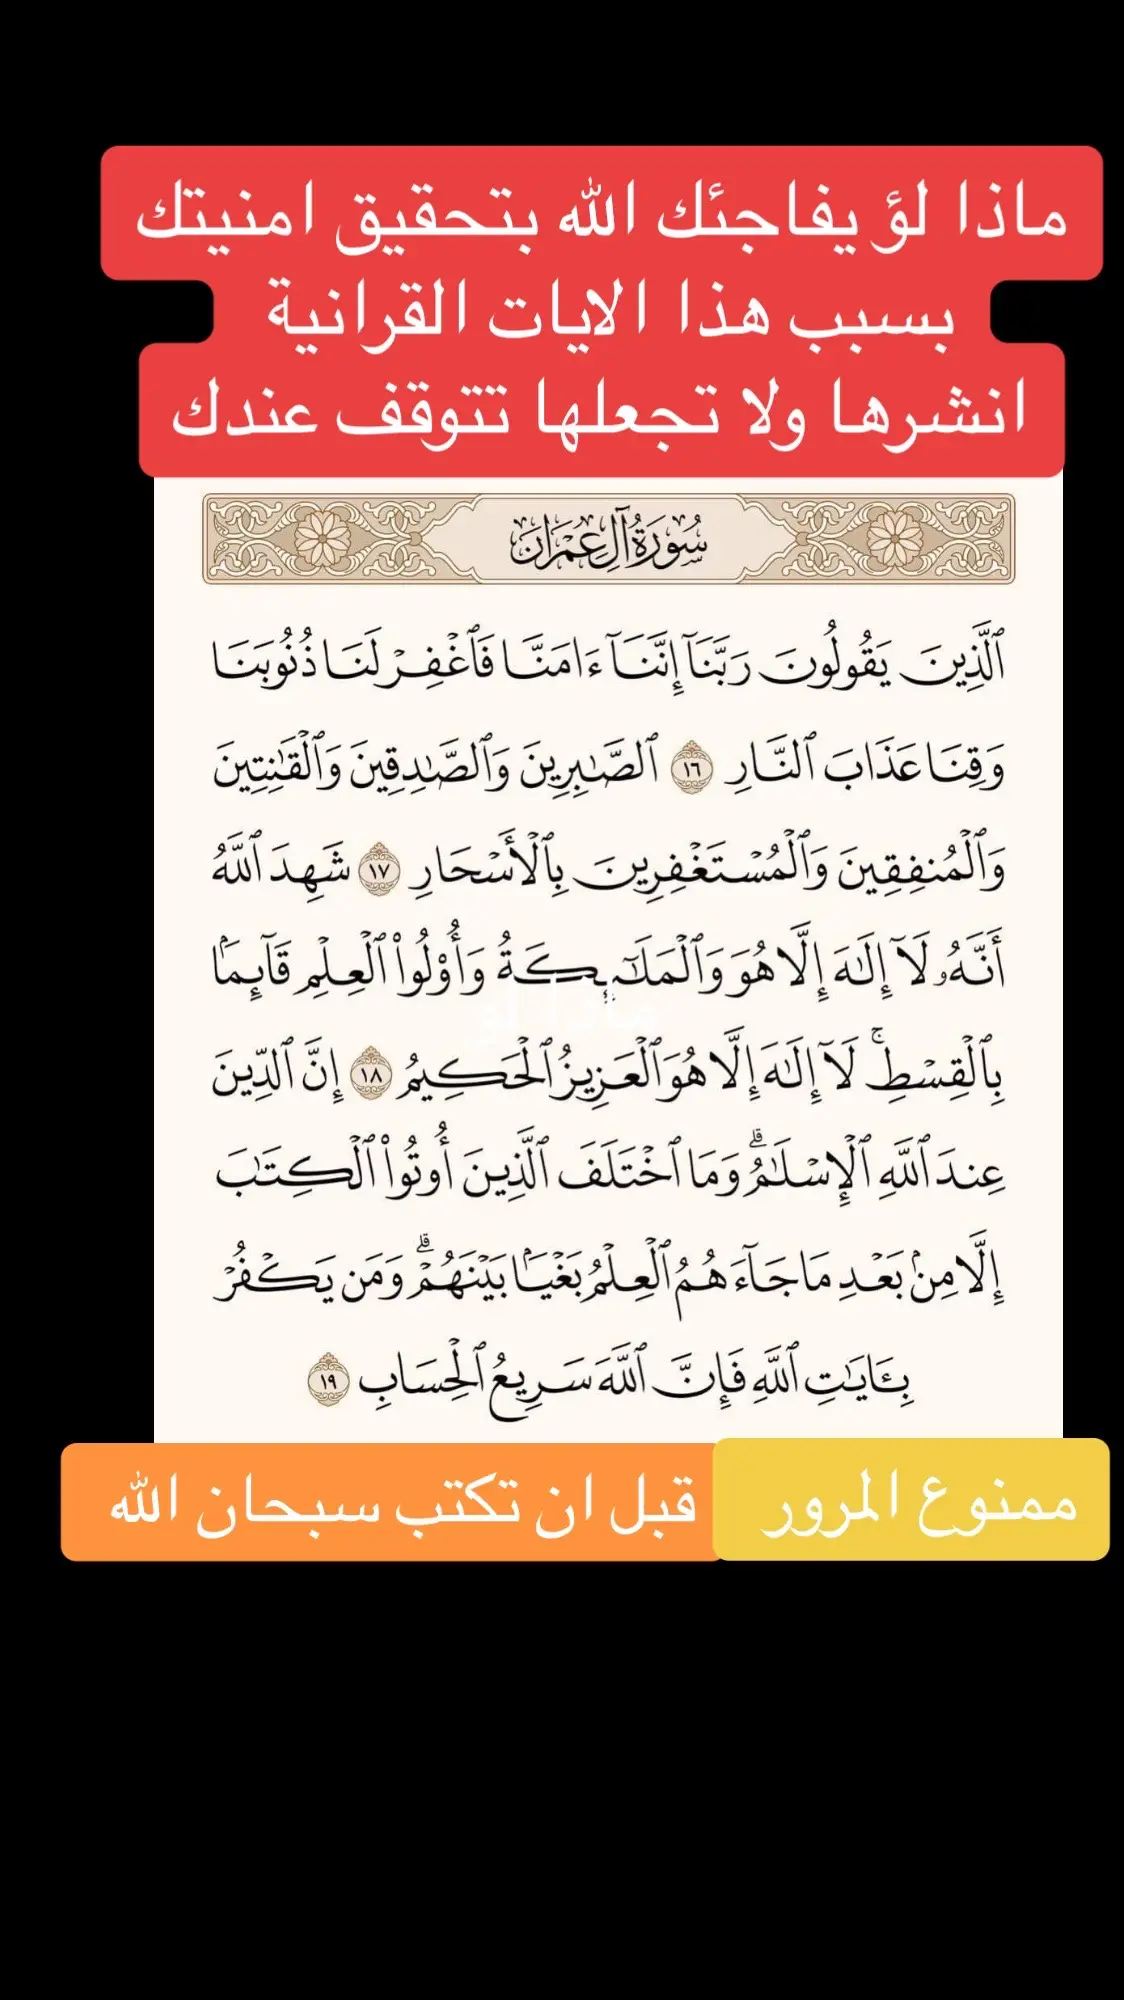 ماذا لؤ يفاجئك الله بتحقيق امنيتك
بسبب هذا الايات القرانية
انشرها ولا تجعلها تتوقف عندك
سُورَةُ آلِ عِمْرَان
ٱلَّذِينَ يَقُولُونَ رَبَّنَآ إِنَّنَآ ءَامَنَّا فَٱغْفِرْ لَنَا ذُنُوبَنَا
وَقِنَا عَذَابَ ٱلنَّارِ ١٦ ٱلصَّٰبِرِينَ وَٱلصَّٰدِقِينَ وَٱلْقَٰنِتِينَ
وَٱلْمُنفِقِينَ وَٱلْمُسْتَغْفِرِينَ بِٱلْأَسْحَارِ ١٧ شَهِدَ ٱللَّهُ
أَنَّهُۥ لَآ إِلَٰهَ إِلَّا هُوَ وَٱلْمَلَٰٓئِكَةُ وَأُو۟لُوا۟ ٱلْعِلْمِ قَآئِمًۢا
بِٱلْقِسْطِ ۚ لَآ إِلَٰهَ إِلَّا هُوَ ٱلْعَزِيزُ ٱلْحَكِيمُ ١٨ إِنَّ ٱلدِّينَ
عِندَ ٱللَّهِ ٱلْإِسْلَٰمُ ۗ وَمَا ٱخْتَلَفَ ٱلَّذِينَ أُوتُوا۟ ٱلْكِتَٰبَ
إِلَّا مِنۢ بَعْدِ مَا جَآءَهُمُ ٱلْعِلْمُ بَغْيًۢا بَيْنَهُمْ ۗ وَمَن يَكْفُرْ
بِـَٔايَٰتِ ٱللَّهِ فَإِنَّ ٱللَّهَ سَرِيعُ ٱلْحِسَابِ ١٩
ممنوع المرور قبل ان تكتب سبحان الله